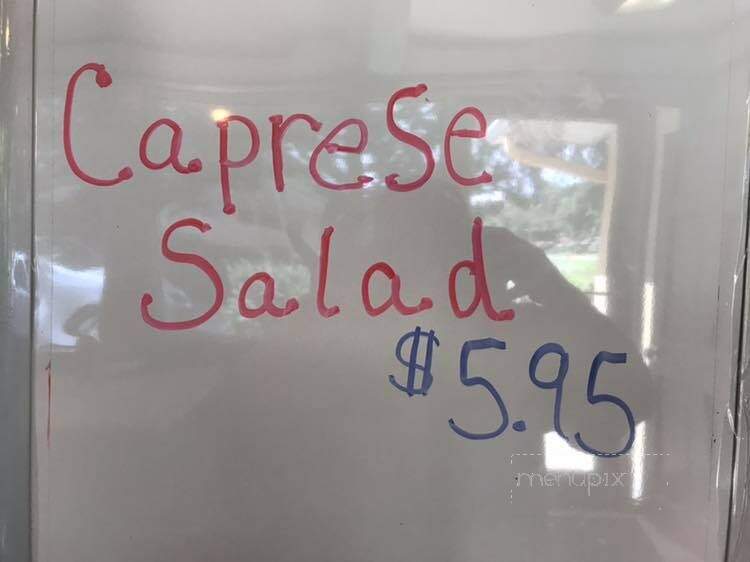 Caprese
Salad
$5.95
menupix